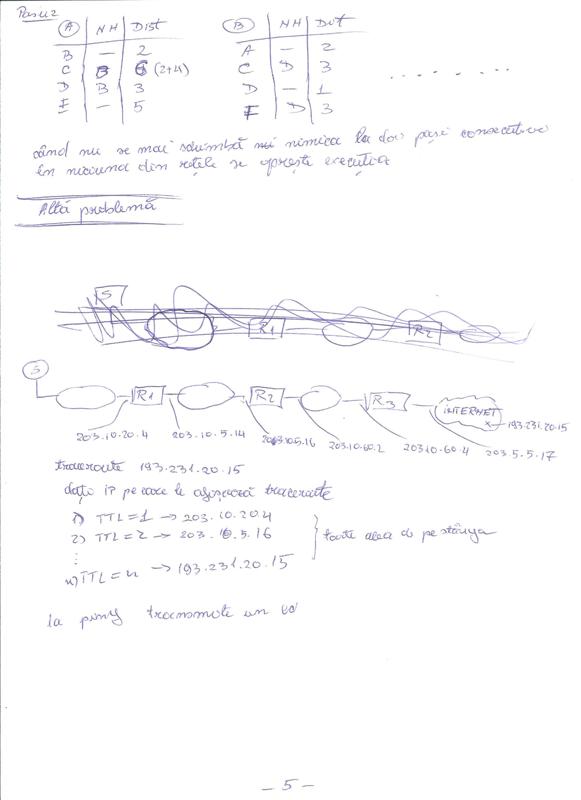 Pasul 2
A | NH | Dist
B | — | 2
C | B | 6 (2+4)
D | B | 3
E | — | 5
B | NH | Dist
A | — | 2
C | D | 3
D | — | 1
E | D | 3
. . . . . . .
când nu se mai schimbă nimica la doi pași consecutivi
în niciuna din rețele se oprește execuția
Altă problemă
S R1 R2
S
R1 R2 R3 INTERNET
193.231.20.15
203.10.20.4 203.10.5.14 203.10.5.16 203.10.60.2 203.10.60.4 203.5.5.17
traceroute 193.231.20.15
dați IP pe care le afișează traceroute
1) TTL=1 → 203.10.20.4
2) TTL=2 → 203.10.5.16
⋮
n) TTL=n → 193.231.20.15
toate alea de pe stânga
la ping transmite un
— 5 —